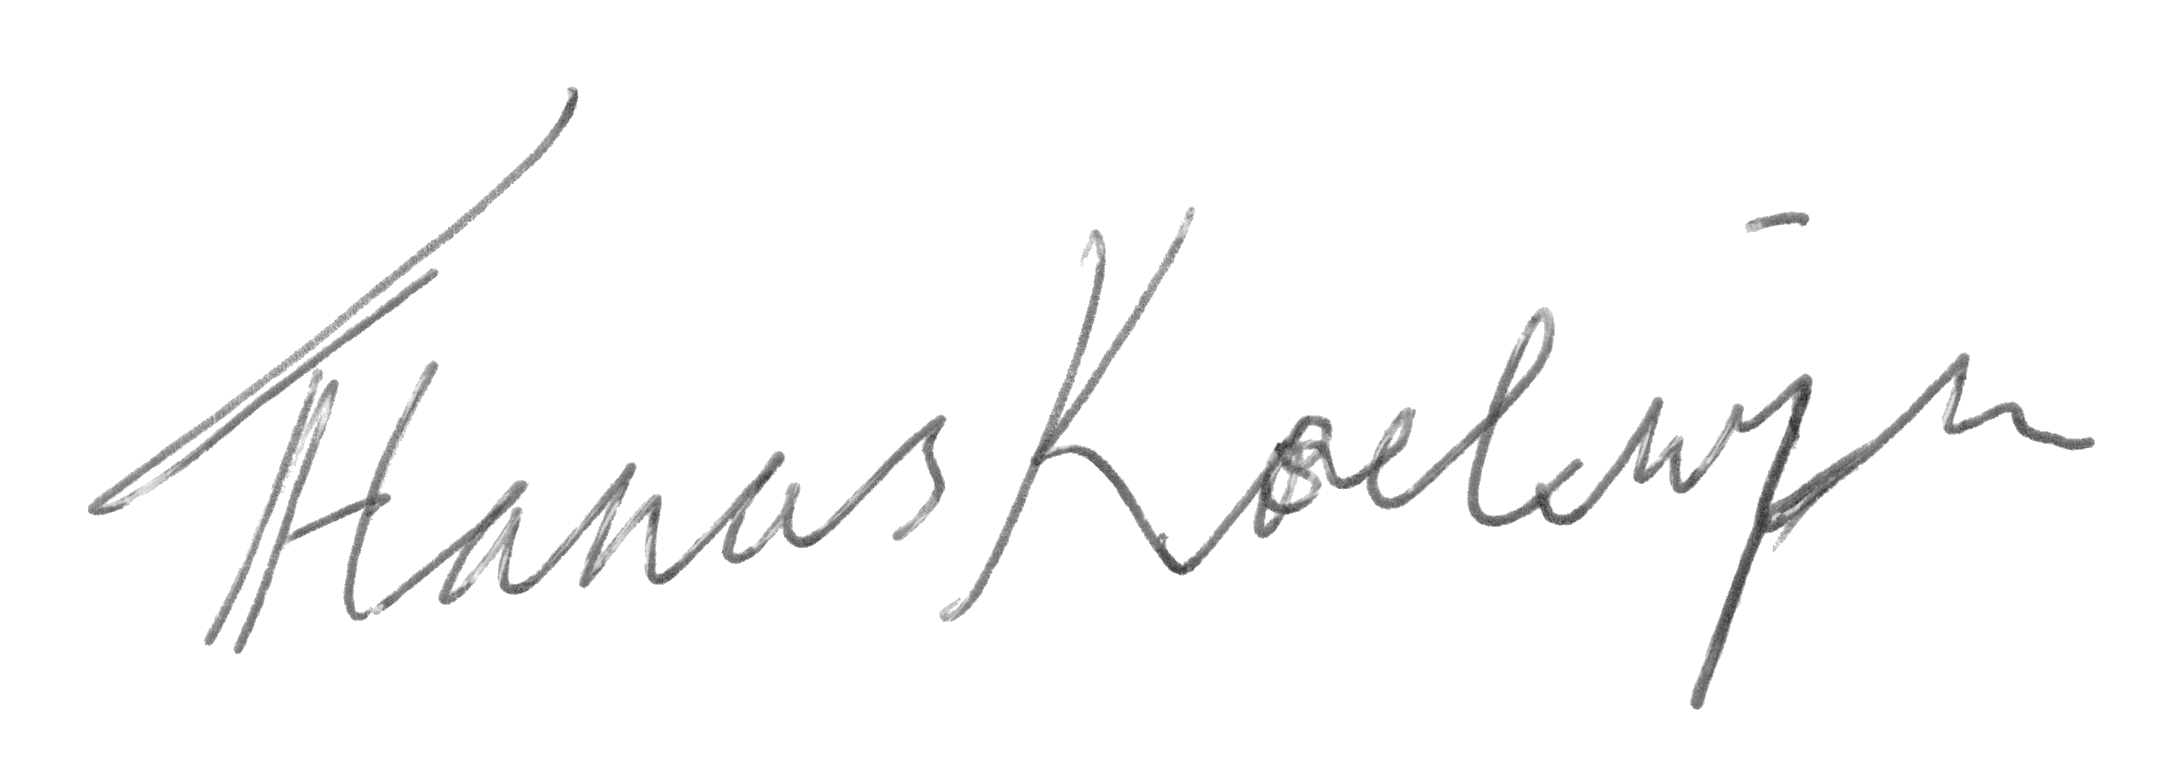 Hanas Koelwijn